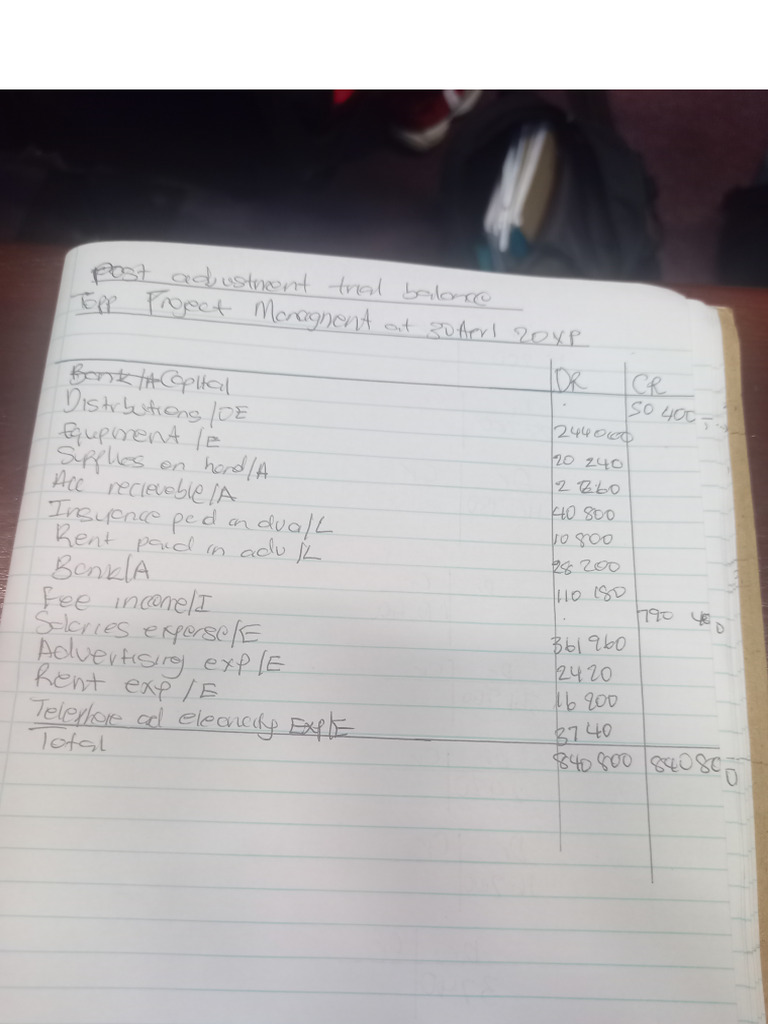 Post adjustment trial balance
Epp Project Managment at 30 Aprl 20XP
DR CR
Bank/A Capital 50 400
Distrbutions/OE 244000
Equpment/E 20 240
Supplies on hand/A
Acc recieveble/A 40 800
Insurence ped in dva/L 10 800
Rent paid in adv/L 28 200
Bank/A 110 180
Fee income/I 790 400
Salaries expense/E 361 960
Advertising exp/E 2420
Rent exp/E 16 200
Telephone ad eleoncity Exp/E 3740
Total 840 800 840 800